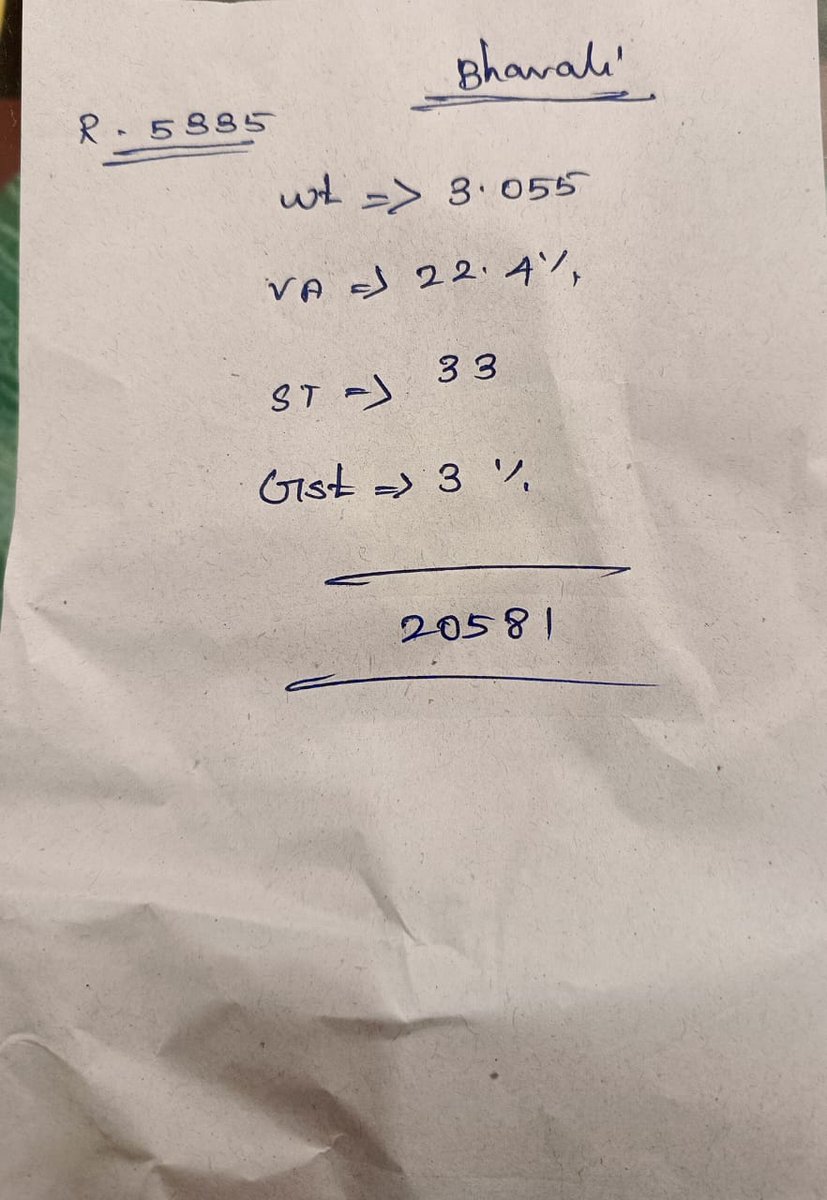 Bhavali
R. 5335
wt => 3.055
VA => 22.4%
ST => 33
Gst => 3 %
20581